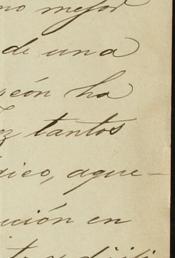 mo mejor
de una
eón ha
z tantos
dico, aque-
ución en